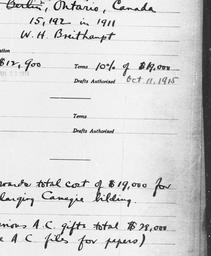 Berlin, Ontario, Canada
15,192 in 1911
W. H. Breithaupt
$12,900 Terms 10% of $19,000
Drafts Authorized Oct 11, 1915
Terms
Drafts Authorized
total cost of $19,000 for
larging Carnegie bilding.
A.C. gifts total $78,000
A C files for papers)